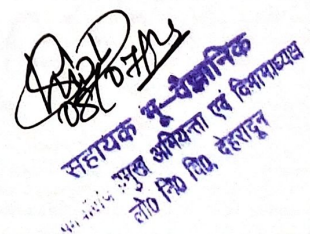 08/07/24
सहायक भू-वैज्ञानिक
प्रमुख अभियन्ता एवं विभागाध्यक्ष
लो० नि० वि०, देहरादून